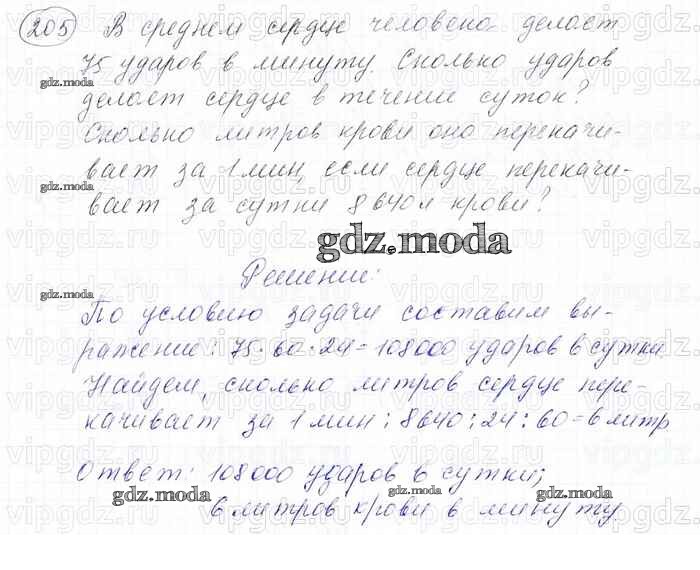 205 В среднем сердце человека делает
75 ударов в минуту. Сколько ударов
делает сердце в течение суток?
Сколько литров крови оно перекачи-
вает за 1 мин, если сердце перекачи-
вает за сутки 8640 л крови?
gdz.moda
Решение:
По условию задачи составим вы-
ражение: 75·60·24=108000 ударов в сутки.
Найдем, сколько литров сердце пере-
качивает за 1 мин: 8640:24:60=6 литр
Ответ: 108000 ударов в сутки;
6 литров крови в минуту